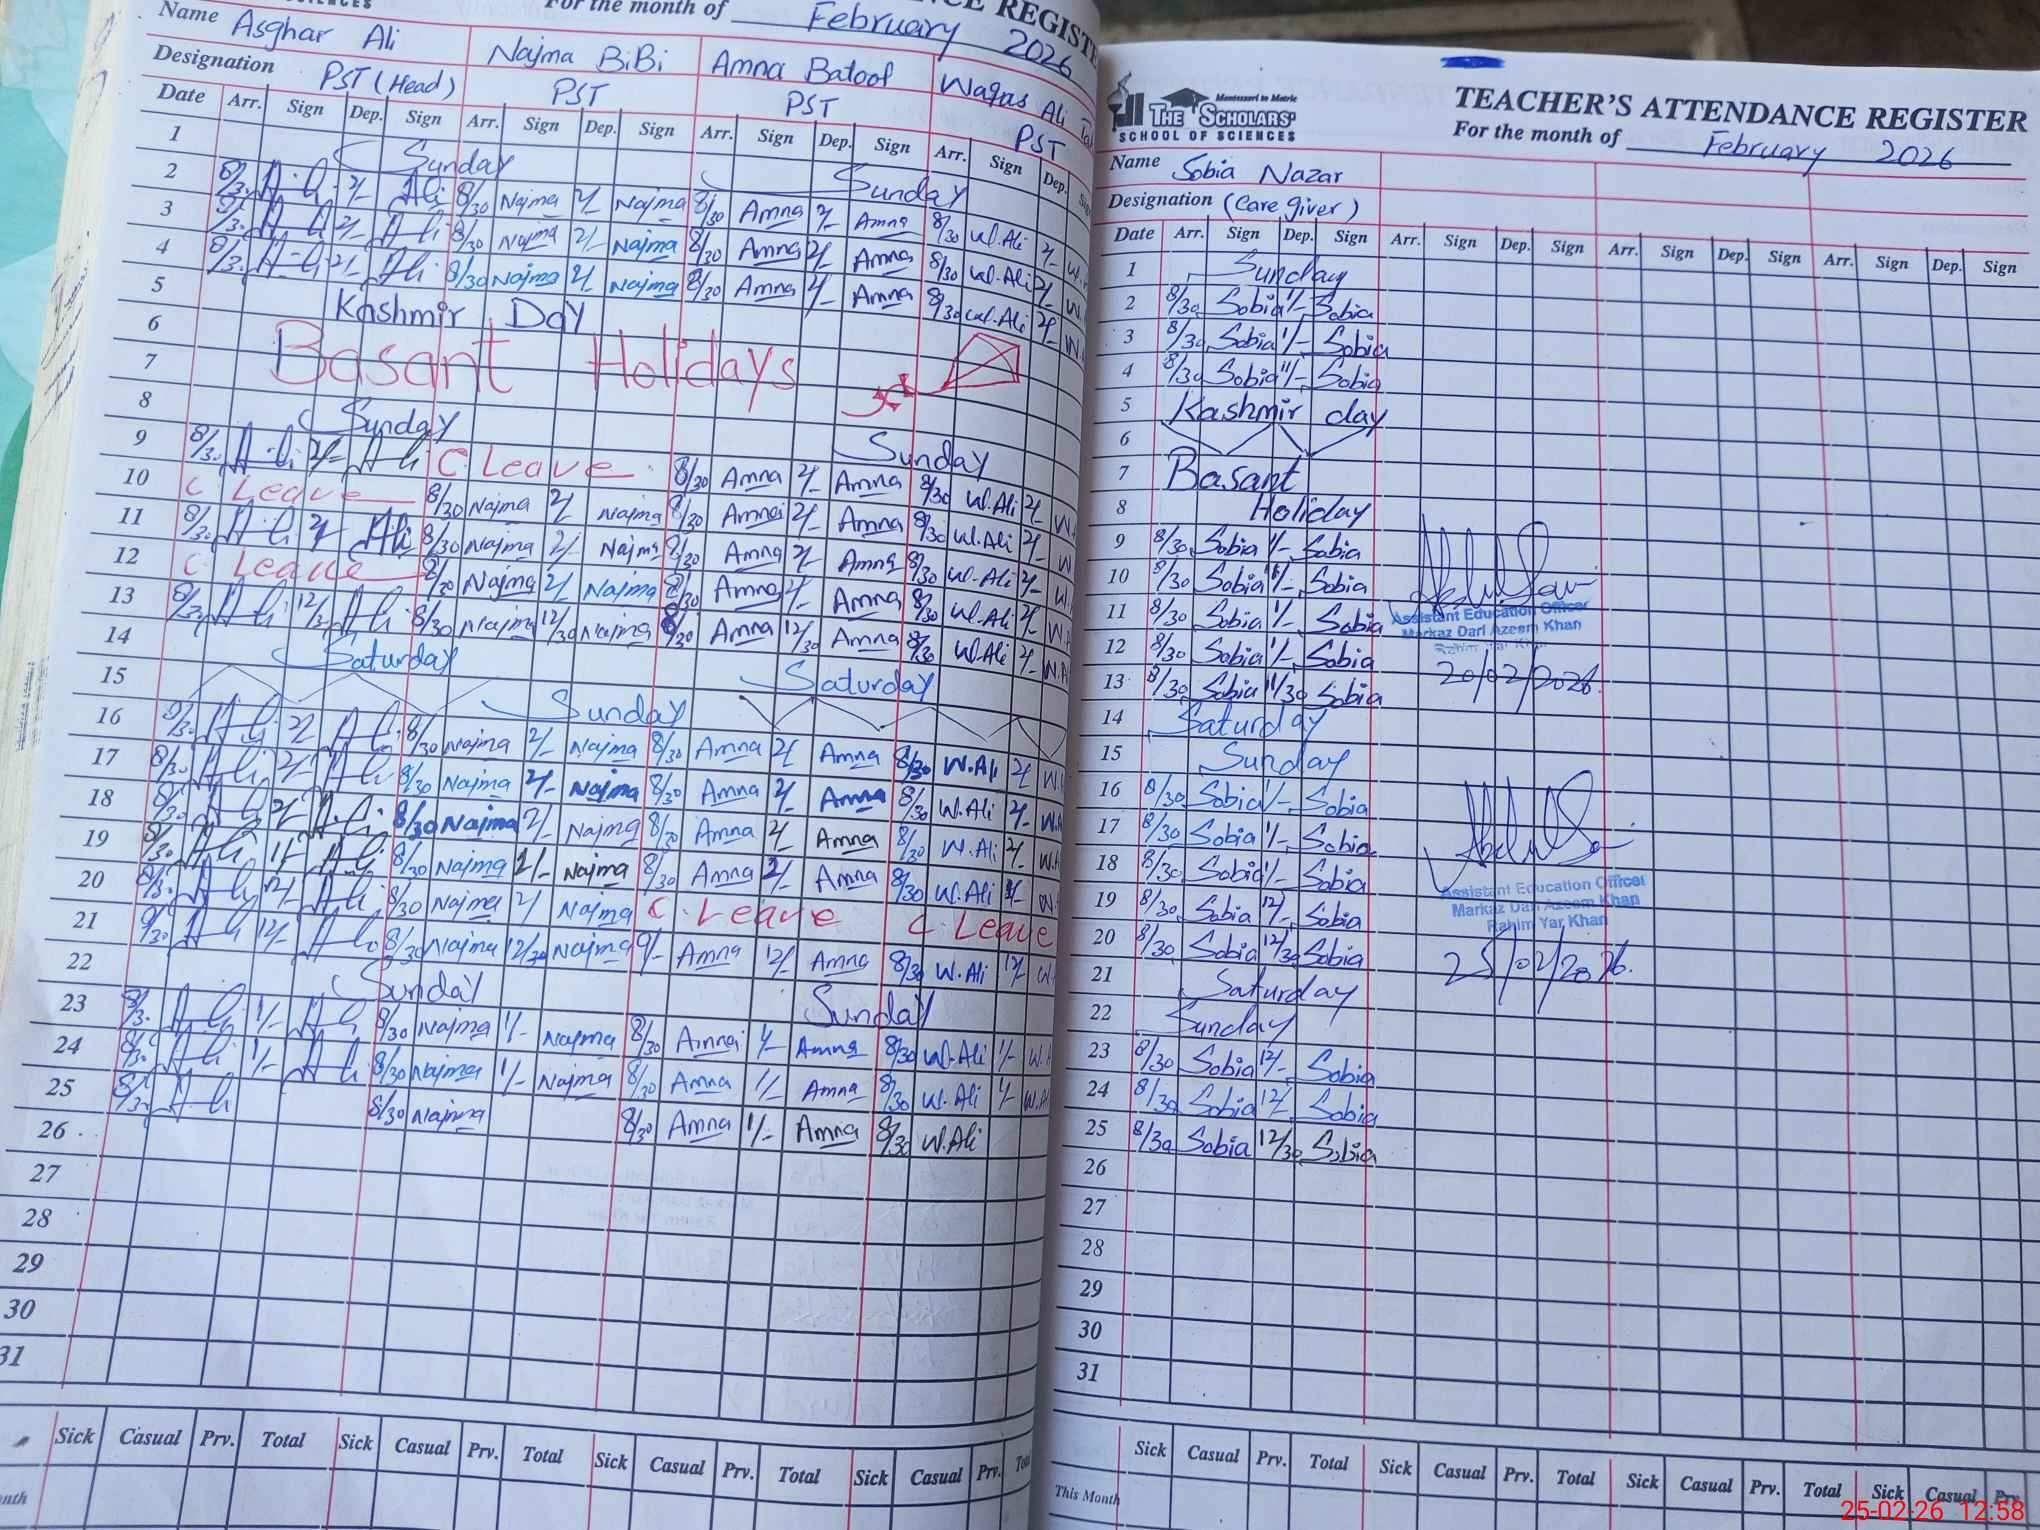 For the month of February 2026
Name Asghar Ali Najma BiBi Amna Batool Waqas Ali
Designation PST (Head) PST PST PST
Date Arr. Sign Dep. Sign Arr. Sign Dep. Sign Arr. Sign Dep. Sign Arr. Sign Dep.
1 Sunday Sunday
2 8/30 Ali 2/- Ali 8/30 Najma 2/- Najma 8/30 Amna 2/- Amna 8/30 W.Ali 2/-
3 8/30 Ali 2/- Ali 8/30 Najma 2/- Najma 8/30 Amna 2/- Amna 8/30 W.Ali 2/-
4 8/30 Ali 2/- Ali 8/30 Najma 2/- Najma 8/30 Amna 2/- Amna 8/30 W.Ali 2/-
5 Kashmir Day
6
7 Basant Holidays
8 Sunday Sunday
9 8/30 Ali 2/- Ali C. Leave 8/30 Amna 2/- Amna 8/30 W.Ali 2/-
10 C Leave 8/30 Najma 2/- Najma 8/30 Amna 2/- Amna 8/30 W.Ali 2/-
11 8/30 Ali 2/- Ali 8/30 Najma 2/- Najma 8/30 Amna 2/- Amna 8/30 W.Ali 2/-
12 C. Leave 8/30 Najma 2/- Najma 8/30 Amna 2/- Amna 8/30 W.Ali 2/-
13 8/30 Ali 12/30 Ali 8/30 Najma 12/30 Najma 8/30 Amna 12/30 Amna 8/30 W.Ali 2/-
14 Saturday Saturday
15 Sunday
16 8/30 Ali 2/- Ali 8/30 Najma 2/- Najma 8/30 Amna 2/- Amna 8/30 W.Ali 2/-
17 8/30 Ali 2/- Ali 8/30 Najma 2/- Najma 8/30 Amna 2/- Amna 8/30 W.Ali 2/-
18 8/30 Ali 2/- Ali 8/30 Najma 2/- Najma 8/30 Amna 2/- Amna 8/30 W.Ali 2/-
19 8/30 Ali 1/- Ali 8/30 Najma 2/- Najma 8/30 Amna 2/- Amna 8/30 W.Ali
20 8/30 Ali 12/- Ali 8/30 Najma 2/- Najma C. Leave C. Leave
21 9/30 Ali 12/- Ali 8/30 Najma 12/30 Najma 9/- Amna 12/- Amna 8/30 W.Ali 12/-
22 Sunday Sunday
23 8/30 Ali 1/- Ali 8/30 Najma 1/- Najma 8/30 Amna 1/- Amna 8/30 W.Ali 1/-
24 8/30 Ali 1/- Ali 8/30 Najma 1/- Najma 8/30 Amna 1/- Amna 8/30 W.Ali 1/-
25 8/30 Ali 8/30 Najma 8/30 Amna 1/- Amna 8/30 W.Ali
26
27
28
29
30
31
Sick Casual Prv. Total Sick Casual Prv. Total Sick Casual Prv. Total Sick Casual Prv.
Montessori to Matric
THE SCHOLARS'
SCHOOL OF SCIENCES
TEACHER'S ATTENDANCE REGISTER
For the month of February 2026
Name Sobia Nazar
Designation (Care giver)
Date Arr. Sign Dep. Sign Arr. Sign Dep. Sign Arr. Sign Dep. Sign Arr. Sign Dep. Sign
1 Sunday
2 8/30 Sobia 1/- Sobia
3 8/30 Sobia 1/- Sobia
4 8/30 Sobia 1/- Sobia
5 Kashmir day
6
7 Basant
8 Holiday
9 8/30 Sobia 1/- Sobia
10 8/30 Sobia 1/- Sobia
11 8/30 Sobia 1/- Sobia
Assistant Education Officer
Markaz Dari Azeem Khan
Rahim Yar Khan
12 8/30 Sobia 1/- Sobia
20/02/2026
13 8/30 Sobia 11/30 Sobia
14 Saturday
15 Sunday
16 8/30 Sobia 1/- Sobia
17 8/30 Sobia 1/- Sobia
18 8/30 Sobia 1/- Sobia
Assistant Education Officer
Markaz Dari Azeem Khan
Rahim Yar Khan
19 8/30 Sobia 12/- Sobia
20 8/30 Sobia 12/30 Sobia
25/02/2026.
21 Saturday
22 Sunday
23 8/30 Sobia 12/- Sobia
24 8/30 Sobia 12/- Sobia
25 8/30 Sobia 12/30 Sobia
26
27
28
29
30
31
Sick Casual Prv. Total Sick Casual Prv. Total Sick Casual Prv. Total Sick Casual Prv.
This Month
25-02-26 12:58